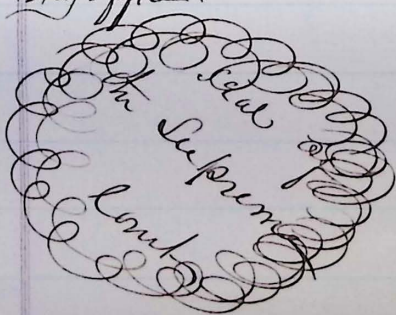 Seal of
the Supreme
Court